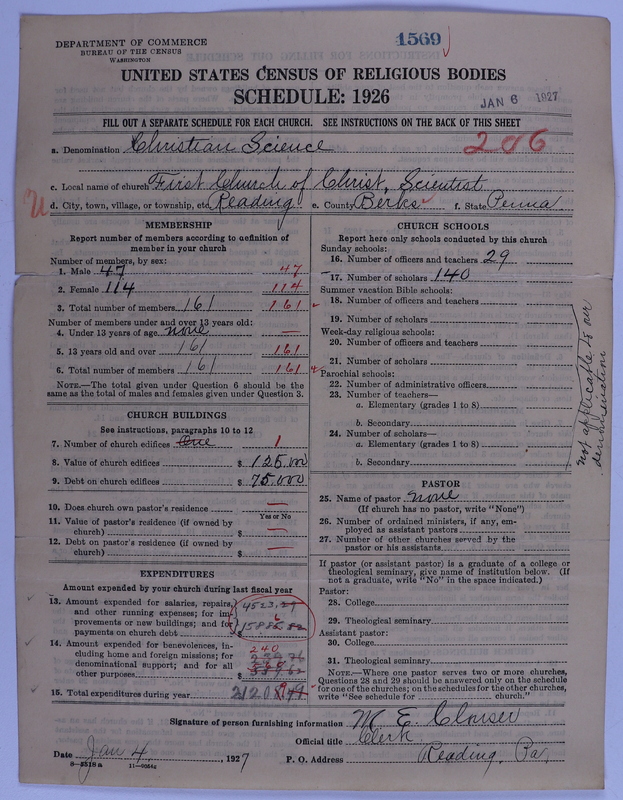 DEPARTMENT OF COMMERCE
BUREAU OF THE CENSUS
WASHINGTON
1569
UNITED STATES CENSUS OF RELIGIOUS BODIES
SCHEDULE: 1926
JAN 6 1927
FILL OUT A SEPARATE SCHEDULE FOR EACH CHURCH. SEE INSTRUCTIONS ON THE BACK OF THIS SHEET
a. Denomination Christian Science 206
c. Local name of church First Church of Christ, Scientist
d. City, town, village, or township, etc. Reading e. County Berks f. State Penna
MEMBERSHIP
Report number of members according to definition of
member in your church
Number of members, by sex:
1. Male 47 47
2. Female 114 114
3. Total number of members 161 161
Number of members under and over 13 years old:
4. Under 13 years of age none —
5. 13 years old and over 161 161
6. Total number of members 161 161
NOTE.—The total given under Question 6 should be
same as the total of males and females given under Question 3.
CHURCH BUILDINGS
See instructions, paragraphs 10 to 12
7. Number of church edifices One 1
8. Value of church edifices $ 125,000
9. Debt on church edifices $ 75,000
10. Does church own pastor's residence —
Yes or No
11. Value of pastor's residence (if owned by
church) $ —
12. Debt on pastor's residence (if owned by
church) $ —
EXPENDITURES
Amount expended by your church during last fiscal year
13. Amount expended for salaries, repairs, 4523.29
and other running expenses; for im-
provements or new buildings; and for
payments on church debt $
14. Amount expended for benevolences, in- 240
cluding home and foreign missions; for
denominational support; and for all
other purposes $
15. Total expenditures during year
CHURCH SCHOOLS
Report here only schools conducted by this church
Sunday schools:
16. Number of officers and teachers 29
17. Number of scholars 140
Summer vacation Bible schools:
18. Number of officers and teachers
19. Number of scholars
Week-day religious schools:
20. Number of officers and teachers
21. Number of scholars
Parochial schools:
22. Number of administrative officers
23. Number of teachers—
a. Elementary (grades 1 to 8)
b. Secondary
24. Number of scholars—
a. Elementary (grades 1 to 8)
b. Secondary
not applicable to our
denomination
PASTOR
25. Name of pastor none
(If church has no pastor, write "None")
26. Number of ordained ministers, if any, em-
ployed as assistant pastors
27. Number of other churches served by the
pastor or his assistants
If pastor (or assistant pastor) is a graduate of a college or
theological seminary, give name of institution below. (If
not a graduate, write "No" in the space indicated.)
Pastor:
28. College
29. Theological seminary
Assistant pastor:
30. College
31. Theological seminary
NOTE.—Where one pastor serves two or more churches,
Questions 28 and 29 should be answered only on the schedule
for one of the churches; on the schedules for the other churches,
write "See schedule for church."
Signature of person furnishing information M. E. Clouser
Official title Clerk
Date Jan 4, 1927 P. O. Address Reading, Pa.
8—5518 a